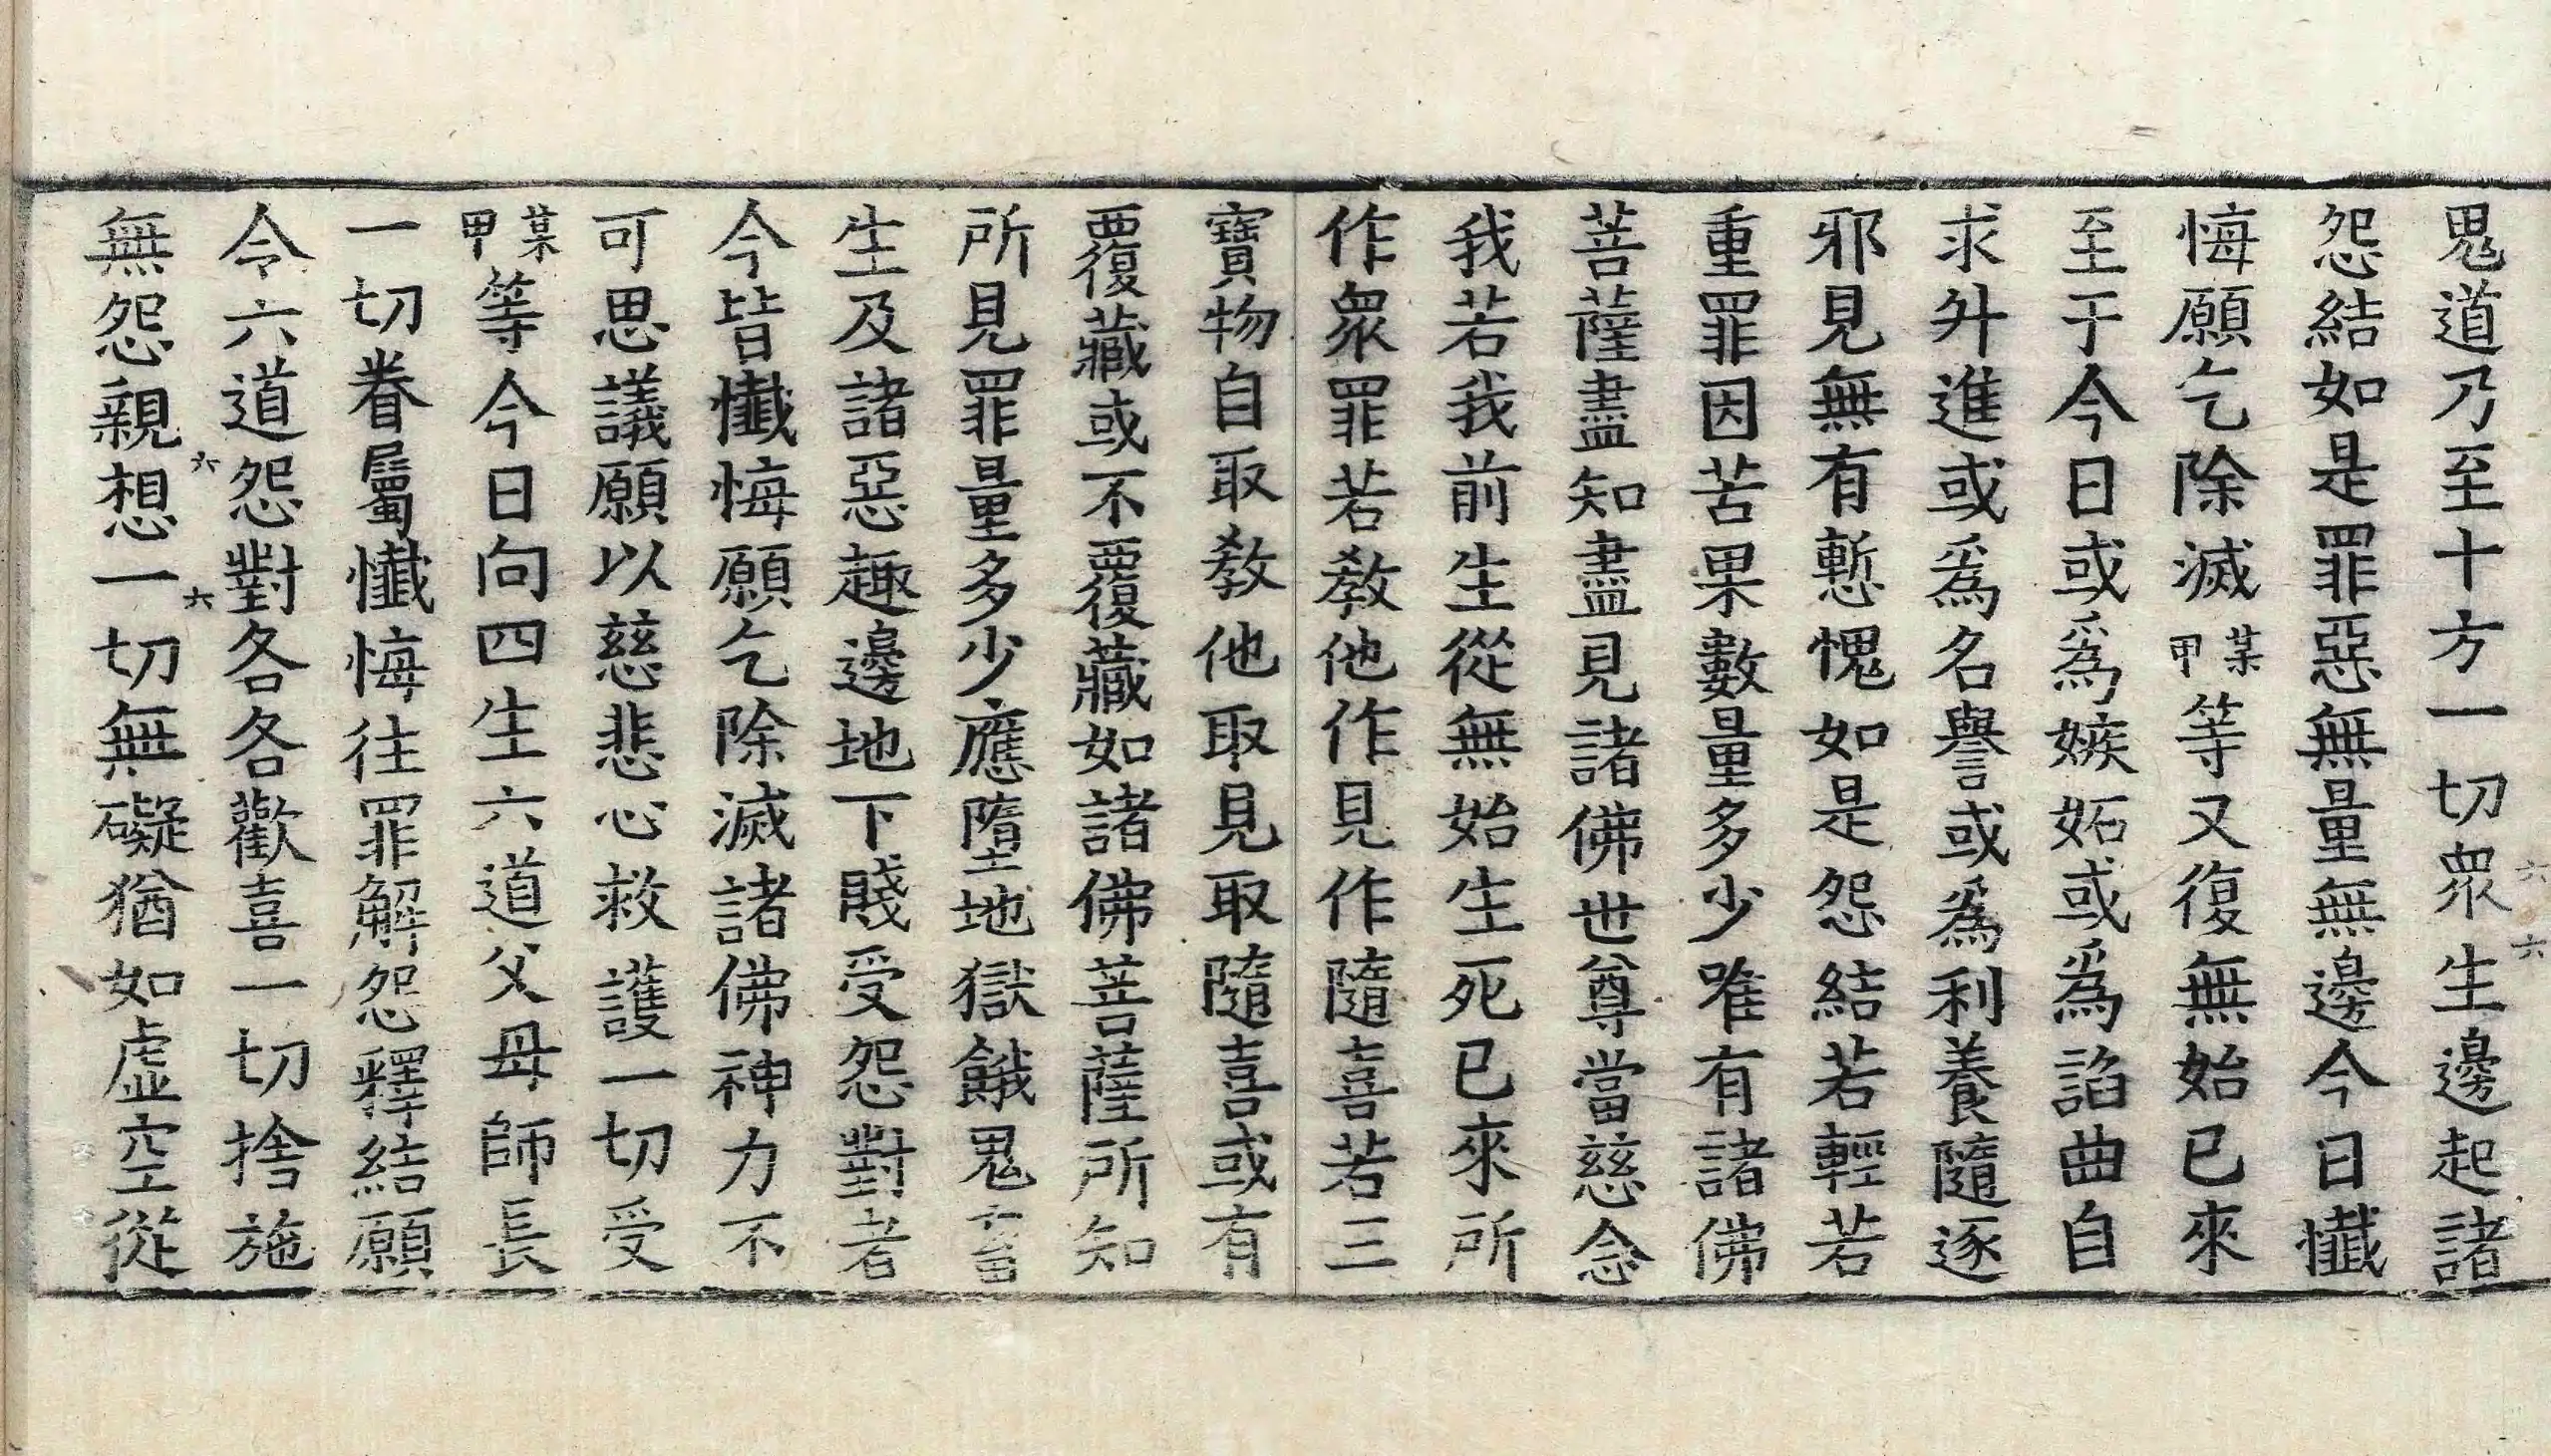 鬼道乃至十方一切衆生邊起諸
怨結如是罪惡無量無邊今日懺
悔願乞除滅某甲等又復無始已來
至于今日或爲嫉妬或爲諂曲自
求升進或爲名譽或爲利養隨逐
邪見無有慙愧如是怨結若輕若
重罪因苦果數量多少唯有諸佛
菩薩盡知盡見諸佛世尊當慈念
我若我前生從無始生死已來所
作衆罪若教他作見作隨喜若三
寶物自取教他取見取隨喜或有
覆藏或不覆藏如諸佛菩薩所知
所見罪量多少應墮地獄餓鬼畜
生及諸惡趣邊地下賤受怨對者
今皆懺悔願乞除滅諸佛神力不
可思議願以慈悲心救護一切受
某甲等今日向四生六道父母師長
一切眷屬懺悔往罪解怨釋結願
令六道怨對各各歡喜一切捨施
無怨親想一切無礙猶如虛空從
六
六
六
六